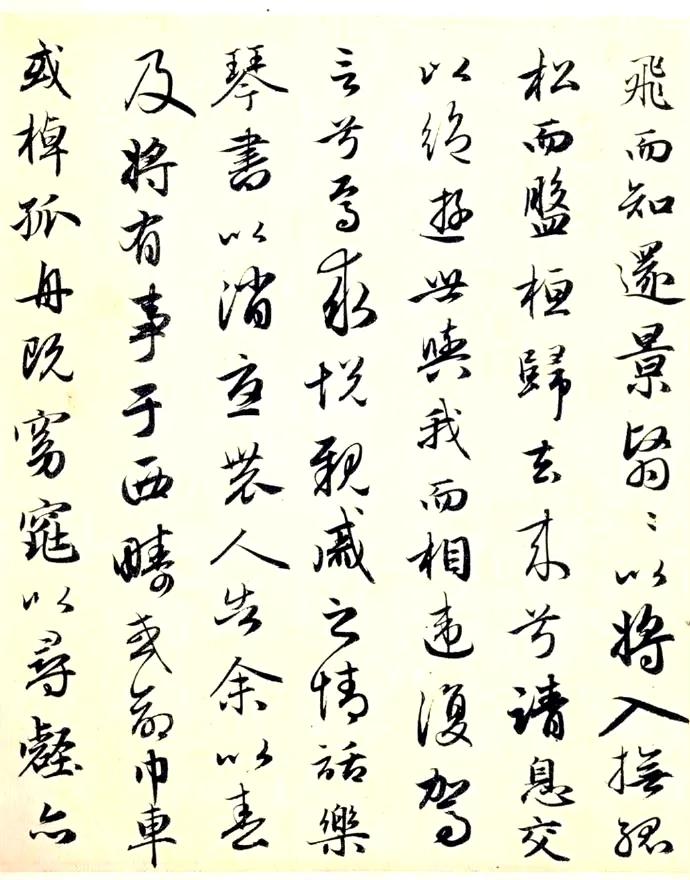 飛而知還景翳〻以將入撫孤
松而盤桓歸去来兮請息交
以絶遊世與我而相違復駕
言兮焉求悅親戚之情話樂
琴書以消憂農人告余以春
及將有事于西疇或命巾車
或棹孤舟既窈窕以尋壑亦